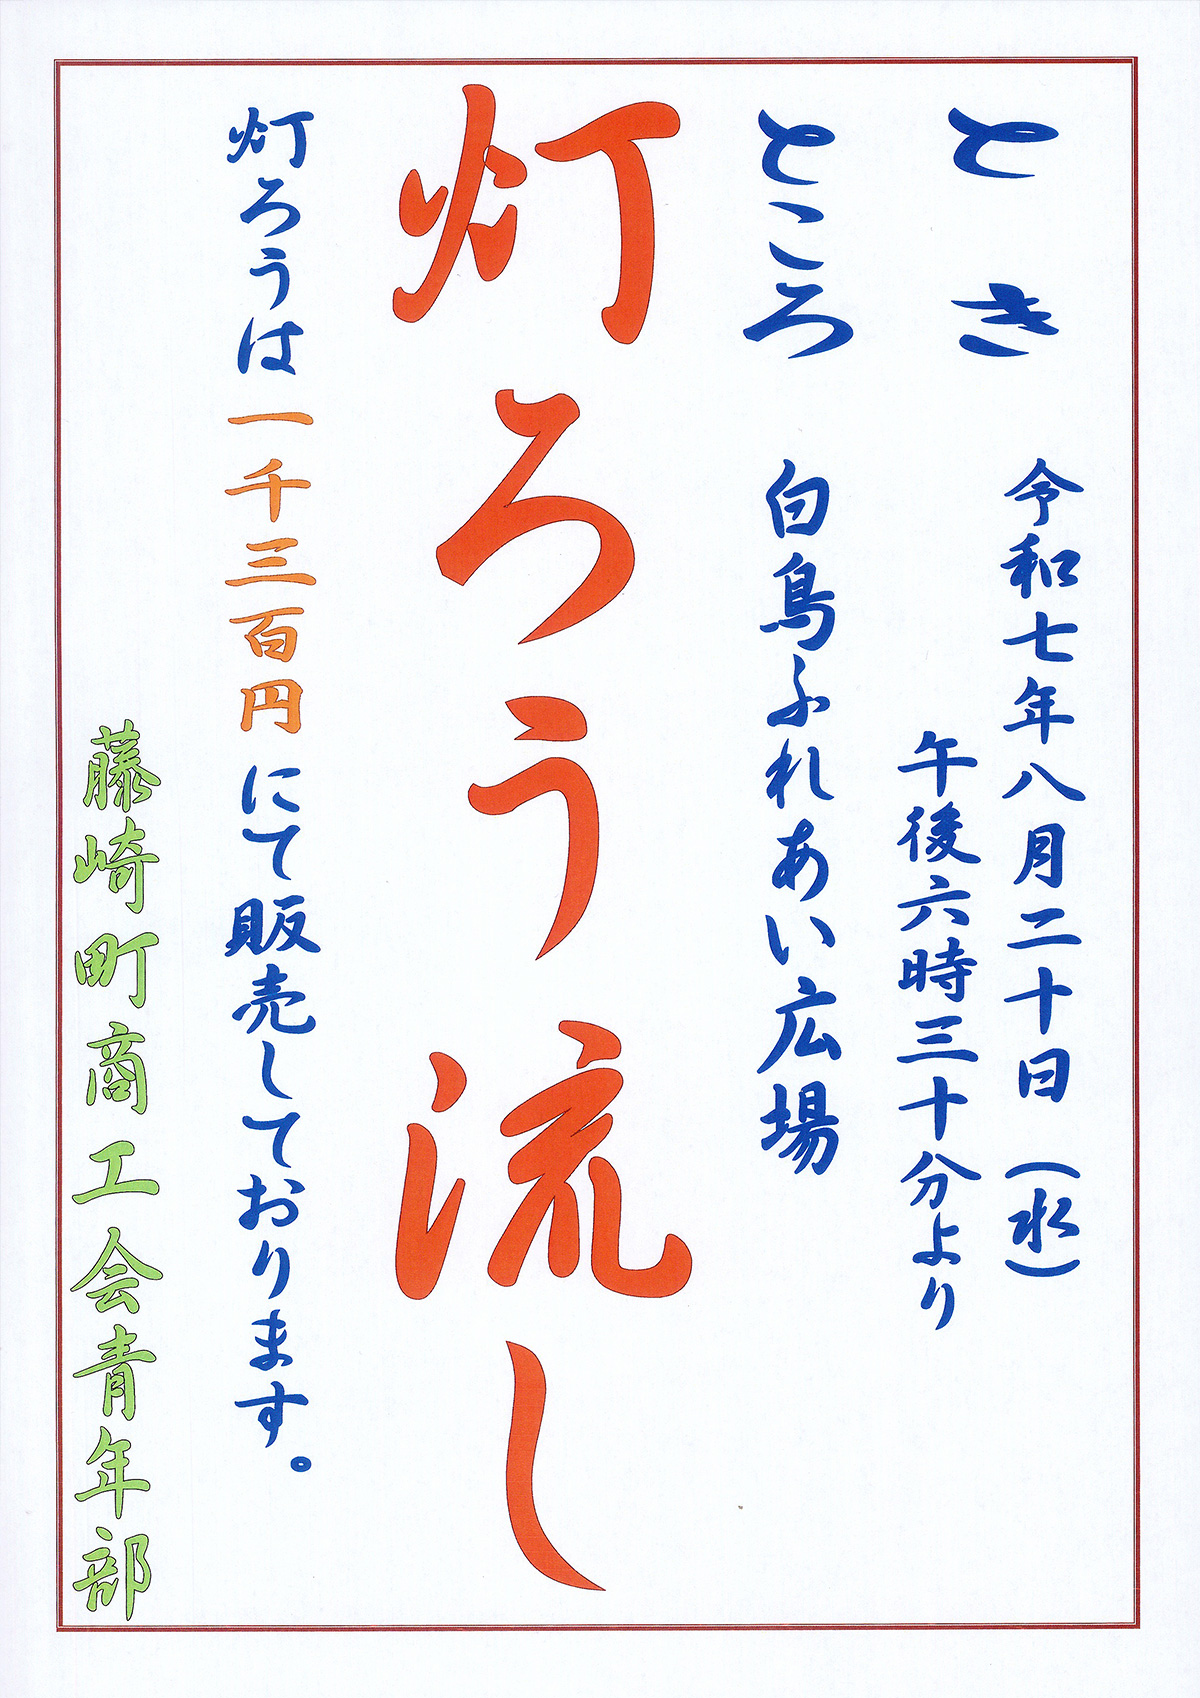 とき　令和七年八月二十日（水）
午後六時三十分より
ところ　白鳥ふれあい広場
灯ろう流し
灯ろうは一千三百円にて販売しております。
藤崎町商工会青年部